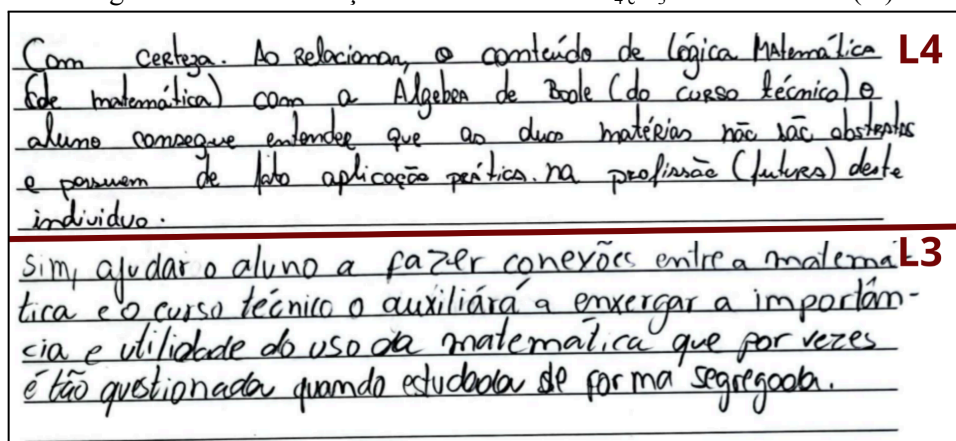 Com certeza. Ao relacionar, o conteúdo de Lógica Matemática L4
(de matemática) com a Álgebra de Boole (do curso técnico) o
aluno consegue entender que as duas matérias não são abstratas
e possuem de fato aplicação prática na profissão (futura) deste
individuo.
Sim, ajudar o aluno a fazer conexões entre a matemá- L3
tica e o curso técnico o auxiliárá a enxergar a importân-
cia e utilidade do uso da matemática que por vezes
é tão questionada quando estudada de forma segregada.